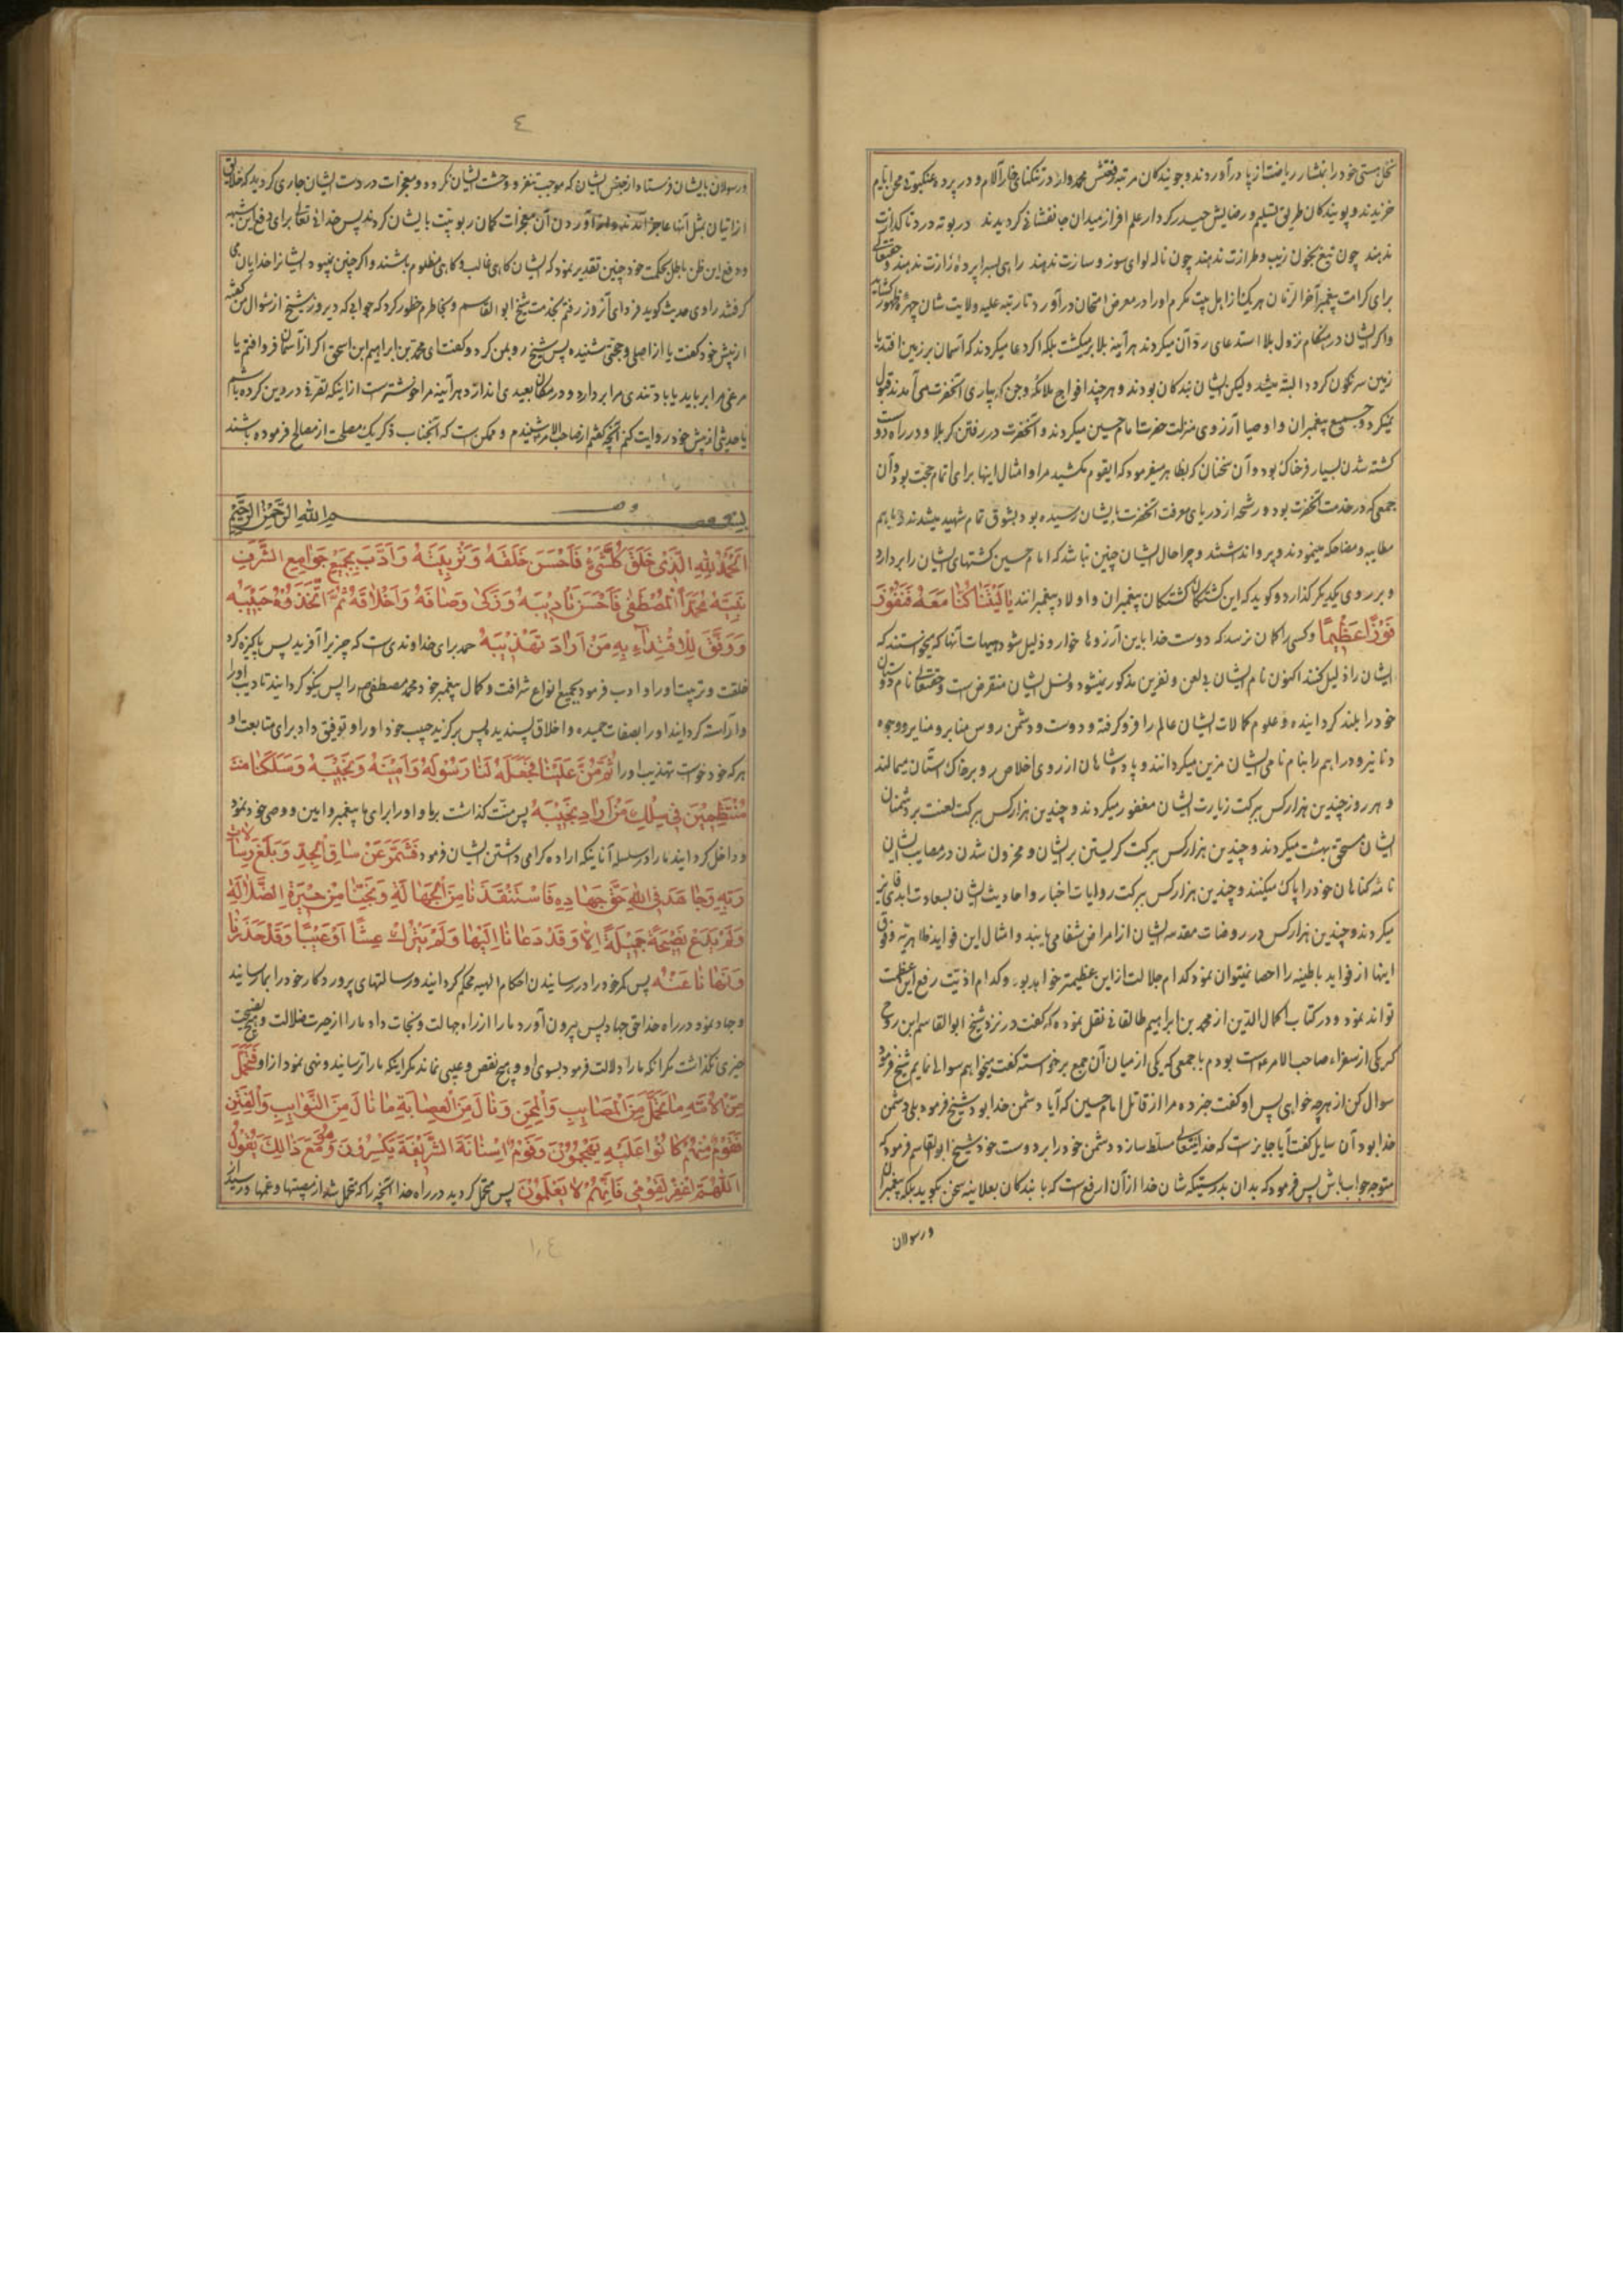 نخل هستی خود را بتشار ریاضت از پا در آوردند و جویندکان مرتبه در تنکنای خار آلام و در پرده عنکبوتی محن ایام
خریدند و پویندکان طریق تسلیم و رضا پیش حیدر کردار علم افراز میدان جانفشانی کردیدند در بوته درد تا کدازت
ندهند چون تیغ بخون زیب و طرازت ندهند چون ناله لوای سوز و سازت ندهند راهی بسراپرده رازت ندهند و حقتعالی
برای کرامت پیغمبر آخر الزمان هر یک را از اهل بیت مکرم او را در معرض امتحان در آورد تا رتبه علیه ولایت شان چهره ظهور کشاید
و اکر ایشان در هنکام نزول بلا استدعای رد آن میکردند هر آینه بلا بر میکشت بلکه اکر دعا میکردند که آسمان بر زمین افتد یا
زمین سرنکون کردد البته میشد و لیکن ایشان بندکان بودند و هر چند افواج ملائکه و جن که بیاری آنحضرت می آمدند قبول
نمیکرد و جمیع پیغمبران و اوصیا آرزوی منزلت حضرت امام حسین میکردند و آنحضرت در رفتن کربلا و در راه دوست
کشته شدن بسیار فرخناک بود و آن سخنان که بظاهر میفرمود که ایقوم مکشید مرا و امثال اینها برای اتمام حجت بود و آن
جمعی که در خدمت آنحضرت بود و رشحه از دریای معرفت آنحضرت بایشان رسیده بود بشوق تمام شهید میشدند و با هم
مطایبه و مضاحکه مینمودند و پروا نداشتند و چرا حال ایشان چنین نباشد که امام حسین کشتهای ایشان را بر دارد
و بر روی یکدیکر کذارد و کوید که این کشتکان کشتکان پیغمبران و اولاد پیغمبرانند یا لَیْتَنا کُنّا مَعَهُ فَنَفُوزَ
فَوْزًا عَظیمًا و کسی را کان نرسد که دوست خدا باین آرزوها خوار و ذلیل شود هیهات آنها که میخواستند که
ایشان را ذلیل کنند اکنون نام ایشان بی لعن و نفرین مذکور نمیشود و نسل ایشان منقرض است و حقتعالی نام دوستان
خود را بلند کردانیده و علوم کمالات ایشان عالم را فرو کرفته و دوست و دشمن رؤس منابر و منایر و وجوه
دنانیر و دراهم را بنام نامی ایشان مزین میکردانند و پادشاهان از روی اخلاص رو بر خاک آستان میمالند
و هر روز چندین هزار کس ببرکت زیارت ایشان مغفور میکردند و چندین هزار کس ببرکت لعنت بر دشمنان
ایشان مستحق بهشت میکردند و چندین هزار کس ببرکت کریستن بر ایشان و محزون شدن در مصایب ایشان
نامه کناهان خود را پاک میکنند و چندین هزار کس ببرکت روایات اخبار و احادیث ایشان بسعادت ابدی فایز
میکردند و چندین هزار کس در روضات مقدسه ایشان از امراض شفا می یابند و امثال این فواید ظاهریه و فوق
اینها از فواید باطنیه را احصا نمیتوان نمود کدام جلالت از این عظیمتر خواهد بود و کدام اذیت رفع این عظمت
تواند نمود و در کتاب اکمال الدین از محمد بن ابراهیم طالقانی نقل نموده که کفت در نزد شیخ ابو القاسم ابن روح
که یکی از سفراء صاحب الامر است بودم با جمعی که یکی از میان آن جمع برخواسته کفت میخواهم سوالی نمایم شیخ فرمود
سوال کن از هر چه خواهی پس او کفت خبر ده مرا از قاتل امام حسین که آیا دشمن خدا بود شیخ فرمود بلی دشمن
خدا بود آن سایل کفت آیا جایز است که خدایتعالی مسلط سازد دشمن خود را بر دوست خود شیخ ابو القاسم فرمود که
متوجه جواب باش پس فرمود که بدان بدرستیکه شان خدا از آن ارفع است که با بندکان بعلانیه سخن بکوید بلکه پیغمبران
و رسولان
٤
و رسولان بایشان فرستاد از جنس ایشان که موجب تنفر و وحشت ایشان نکردد و معجزات در دست ایشان جاری کردید که خلایق
از اتیان بمثل آنها عاجز آمدند و آوردن آن معجزات کمان ربوبیت بایشان کردند پس خدای تعالی برای دفع این شبهه
و دفع این ظن باطل بحکمت خود چنین تقدیر نمود که ایشان کاهی غالب و کاهی مظلوم باشند و اکر چنین نمیبود ایشانرا خدایان می
کرفتند راوی حدیث کوید فردای آنروز رفتم بخدمت شیخ ابو القاسم و بخاطرم خطور کرد که جوابی که دیروز شیخ از سوال من کفته
از پیش خود کفت یا از اصلی و حجتی شنیده پس شیخ رو بمن کرد و کفت ای محمد بن ابراهیم ابن اسحق اکر از آسمان فرو افتم یا
مرغی مرا برباید یا باد تندی مرا بردارد و در مکان بعیدی اندازد هر آینه مرا خوشتر است از اینکه تقریر در دین کرده باشم
یا حدیثی از پیش خود روایت کنم آنچه کفتم از صاحب الامر شنیدم و ممکن است که آنجناب ذکر یک مصلحت از مصالح فرموده باشند
بسم الله الرحمن الرحیم
اَلْحَمْدُ لِلّهِ الَّذی خَلَقَ کُلَّ شَیْءٍ فَاَحْسَنَ خَلْقَهُ وَ تَرْبِیَتَهُ وَ اَدَّبَ بِجَمیعِ جَوامِعِ الشَّرَفِ
نَبِیَّهُ مُحَمَّدًا الْمُصْطَفی فَاَحْسَنَ تَأدیبَهُ وَ زَکّی اوصافَهُ وَ اَخْلاقَهُ ثُمَّ اتَّخَذَهُ حَبیبَهُ
وَ وَفَّقَ لِلْاِقْتِداءِ بِهِ مَنْ اَرادَ تَهْذیبَهُ حمد برای خداوندی است که چیز را آفرید پس پاکیزه کرد
خلقت و تربیت او را و ادب فرمود بجمیع انواع شرافت و کمال پیغمبر خود محمد مصطفی ص را پس نیکو کردانید تادیب او را
و آراسته کردانید او را بصفات حمیده و اخلاق پسندیده پس برکزید حبیب خود او را و توفیق داد برای متابعت او
هر که خود خواست تهذیب او را ثُمَّ مَنَّ عَلَیْنا فَجَعَلَهُ لَنا رَسُولَهُ وَ اَمینَهُ وَ نَجیبَهُ وَ سَلَکَنا
مُنْتَظِمینَ فی سِلْکِ مَنْ اَرادَ نَجیبَهُ پس منت کذاشت بر ما و او را برای ما پیغمبر و امین و وصی خود نمود
و داخل کردانید ما را در سلسله آنانیکه اراده کرامی داشتن ایشان فرمود فَشَمَّرَ عَنْ ساقِ الْجِدِّ وَ بَلَّغَ رِسالاتِ
رَبِّهِ وَ جاهَدَ فِی اللهِ حَقَّ جِهادِهِ فَاسْتَنْقَذَنا مِنَ الْجَهالَةِ وَ نَجّینا مِنْ حَیْرَةِ الضَّلالَةِ
وَلَمْ یَدَعْ نَصیحَةً جَمیلَةً اِلاّ وَ قَدْ دَعانا اِلَیْها وَ لَمْ یَتْرُکْ غِشًّا اَوْ عَیْبًا وَقَدْ حَذَّرَنا
وَ نَهانا عَنْهُ پس کمر خود را در رسانیدن احکام الهیه محکم کردانید و رسالتهای پروردکار خود را بما رسانید
و جهاد نمود در راه خدا حق جهاد پس بیرون آورد ما را از راه جهالت و نجات داد ما را از حیرت ضلالت و هیچ نصیحت
خیری نکذاشت مکر آنکه ما را دلالت فرمود بسوی او و هیچ نقص و عیبی نماند مکر اینکه ما را ترسانید و نهی نمود از او فَتَحَمَّلَ
مِنَ الْاُمَّةِ ما تَحَمَّلَ مِنَ الْمَصایِبِ وَ الْمِحَنِ وَ نالَ مِنَ الْعِصابَةِ ما نالَ مِنَ النَّوایِبِ وَ الْفِتَنِ
فَقَوْمٌ مِنْهُمْ کانُوا عَلَیْهِ یَهْجُمُونَ وَ قَوْمٌ اَسْنانَهُ الشَّریفَةَ یَکْسِرُونَ وَ هُوَ مَعَ ذالِکَ یَقُولُ
اَللّهُمَّ اغْفِرْ لِقَوْمی فَاِنَّهُمْ لا یَعْلَمُونَ پس متحمل کردید در راه خدا آنچه را که متحمل شد از مصیبتها و غمها و رسید